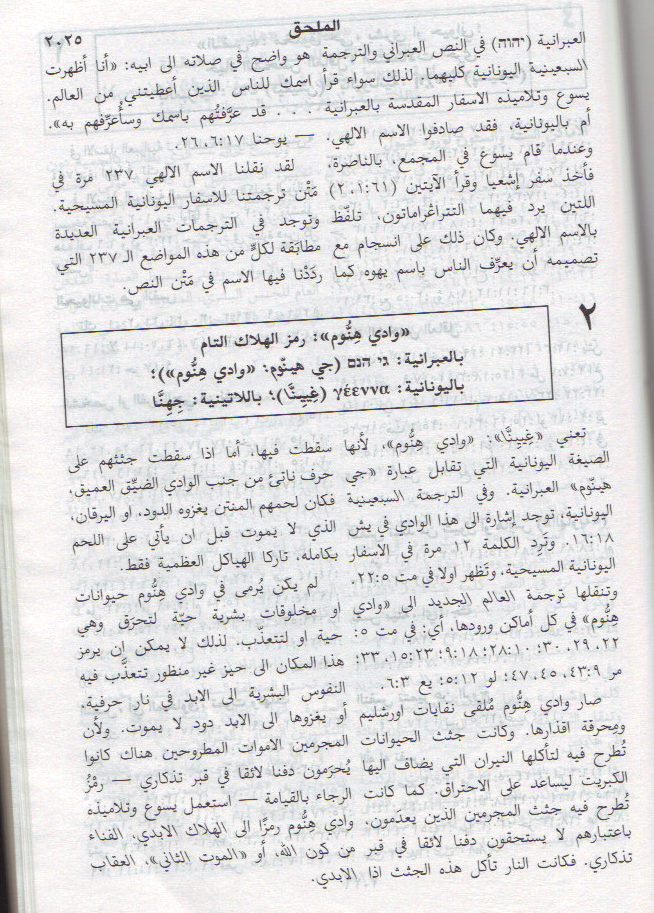 الملحق
٢٠٢٥
العبرانية (יהוה) في النص العبراني والترجمة
السبعينية اليونانية كليهما. لذلك سواء قرأ
يسوع وتلاميذه الاسفار المقدسة بالعبرانية
أم باليونانية، فقد صادفوا الاسم الالهي.
وعندما قام يسوع في المجمع، بالناصرة،
فأخذ سفر إشعيا وقرأ الآيتين (٦١:١، ٢)
اللتين يرد فيهما التتراغراماتون، تلفّظ
بالاسم الالهي. وكان ذلك على انسجام مع
تصميمه أن يعرِّف الناس باسم يهوه كما
هو واضح في صلاته الى ابيه: «أنا أظهرت
اسمك للناس الذين أعطيتني من العالم.
. . . قد عرَّفتُهم باسمك وسأُعرِّفهم به».
— يوحنا ١٧:٦، ٢٦.
لقد نقلنا الاسم الالهي ٢٣٧ مرة في
مَتْن ترجمتنا للاسفار اليونانية المسيحية.
وتوجد في الترجمات العبرانية العديدة
مطابَقة لكلٍّ من هذه المواضع الـ ٢٣٧ التي
ردَدْنا فيها الاسم في مَتْن النص.
٢
«وادي هِنُّوم»: رمز الهلاك التام
بالعبرانية: גי הנם (جي هينّوم؛ «وادي هِنُّوم»)؛
باليونانية: γέεννα (غِيِينَّا)؛ باللاتينية: جِهِنَّا
تعني «غِيِينَّا»: «وادي هِنُّوم»، لأنها
الصيغة اليونانية التي تقابل عبارة «جي
هينّوم» العبرانية. وفي الترجمة السبعينية
اليونانية، توجد إشارة الى هذا الوادي في يش
١٨:١٦. وتَرِد الكلمة ١٢ مرة في الاسفار
اليونانية المسيحية، وتَظهر اولا في مت ٥:٢٢.
وتنقلها ترجمة العالم الجديد الى «وادي
هِنُّوم» في كل أماكن ورودها، أي: في مت ٥:
٢٢، ٢٩، ٣٠؛ ١٠:٢٨؛ ١٨:٩؛ ٢٣:١٥، ٣٣؛
مر ٩:٤٣، ٤٥، ٤٧؛ لو ١٢:٥؛ يع ٣:٦.
صار وادي هِنُّوم مُلقى نفايات اورشليم
ومِحرقة اقذارها. وكانت جثث الحيوانات
تُطرح فيه لتأكلها النيران التي يضاف اليها
الكبريت ليساعد على الاحتراق. كما كانت
تُطرح فيه جثث المجرمين الذين يعدَمون،
باعتبارهم لا يستحقون دفنا لائقا في قبر
تذكاري. فكانت النار تأكل هذه الجثث اذا
سقطت فيها، أما اذا سقطت جثثهم على
حرف ناتئ من جنب الوادي الضيِّق العميق،
فكان لحمهم المنتن يغزوه الدود، او اليرقان،
الذي لا يموت قبل ان يأتي على اللحم
بكامله، تاركا الهياكل العظمية فقط.
لم يكن يُرمى في وادي هِنُّوم حيوانات
او مخلوقات بشرية حيّة لتحرَق وهي
حية او لتتعذّب. لذلك لا يمكن ان يرمز
هذا المكان الى حيز غير منظور تتعذَّب فيه
النفوس البشرية الى الابد في نار حرفية،
أو يغزوها الى الابد دود لا يموت. ولأن
المجرمين الاموات المطروحين هناك كانوا
يُحرَمون دفنا لائقا في قبر تذكاري — رمْزُ
الرجاء بالقيامة — استعمل يسوع وتلاميذه
وادي هِنُّوم رمزًا الى الهلاك الابدي، الفناء
من كون الله، أو «الموت الثاني»، العقاب
الابدي.